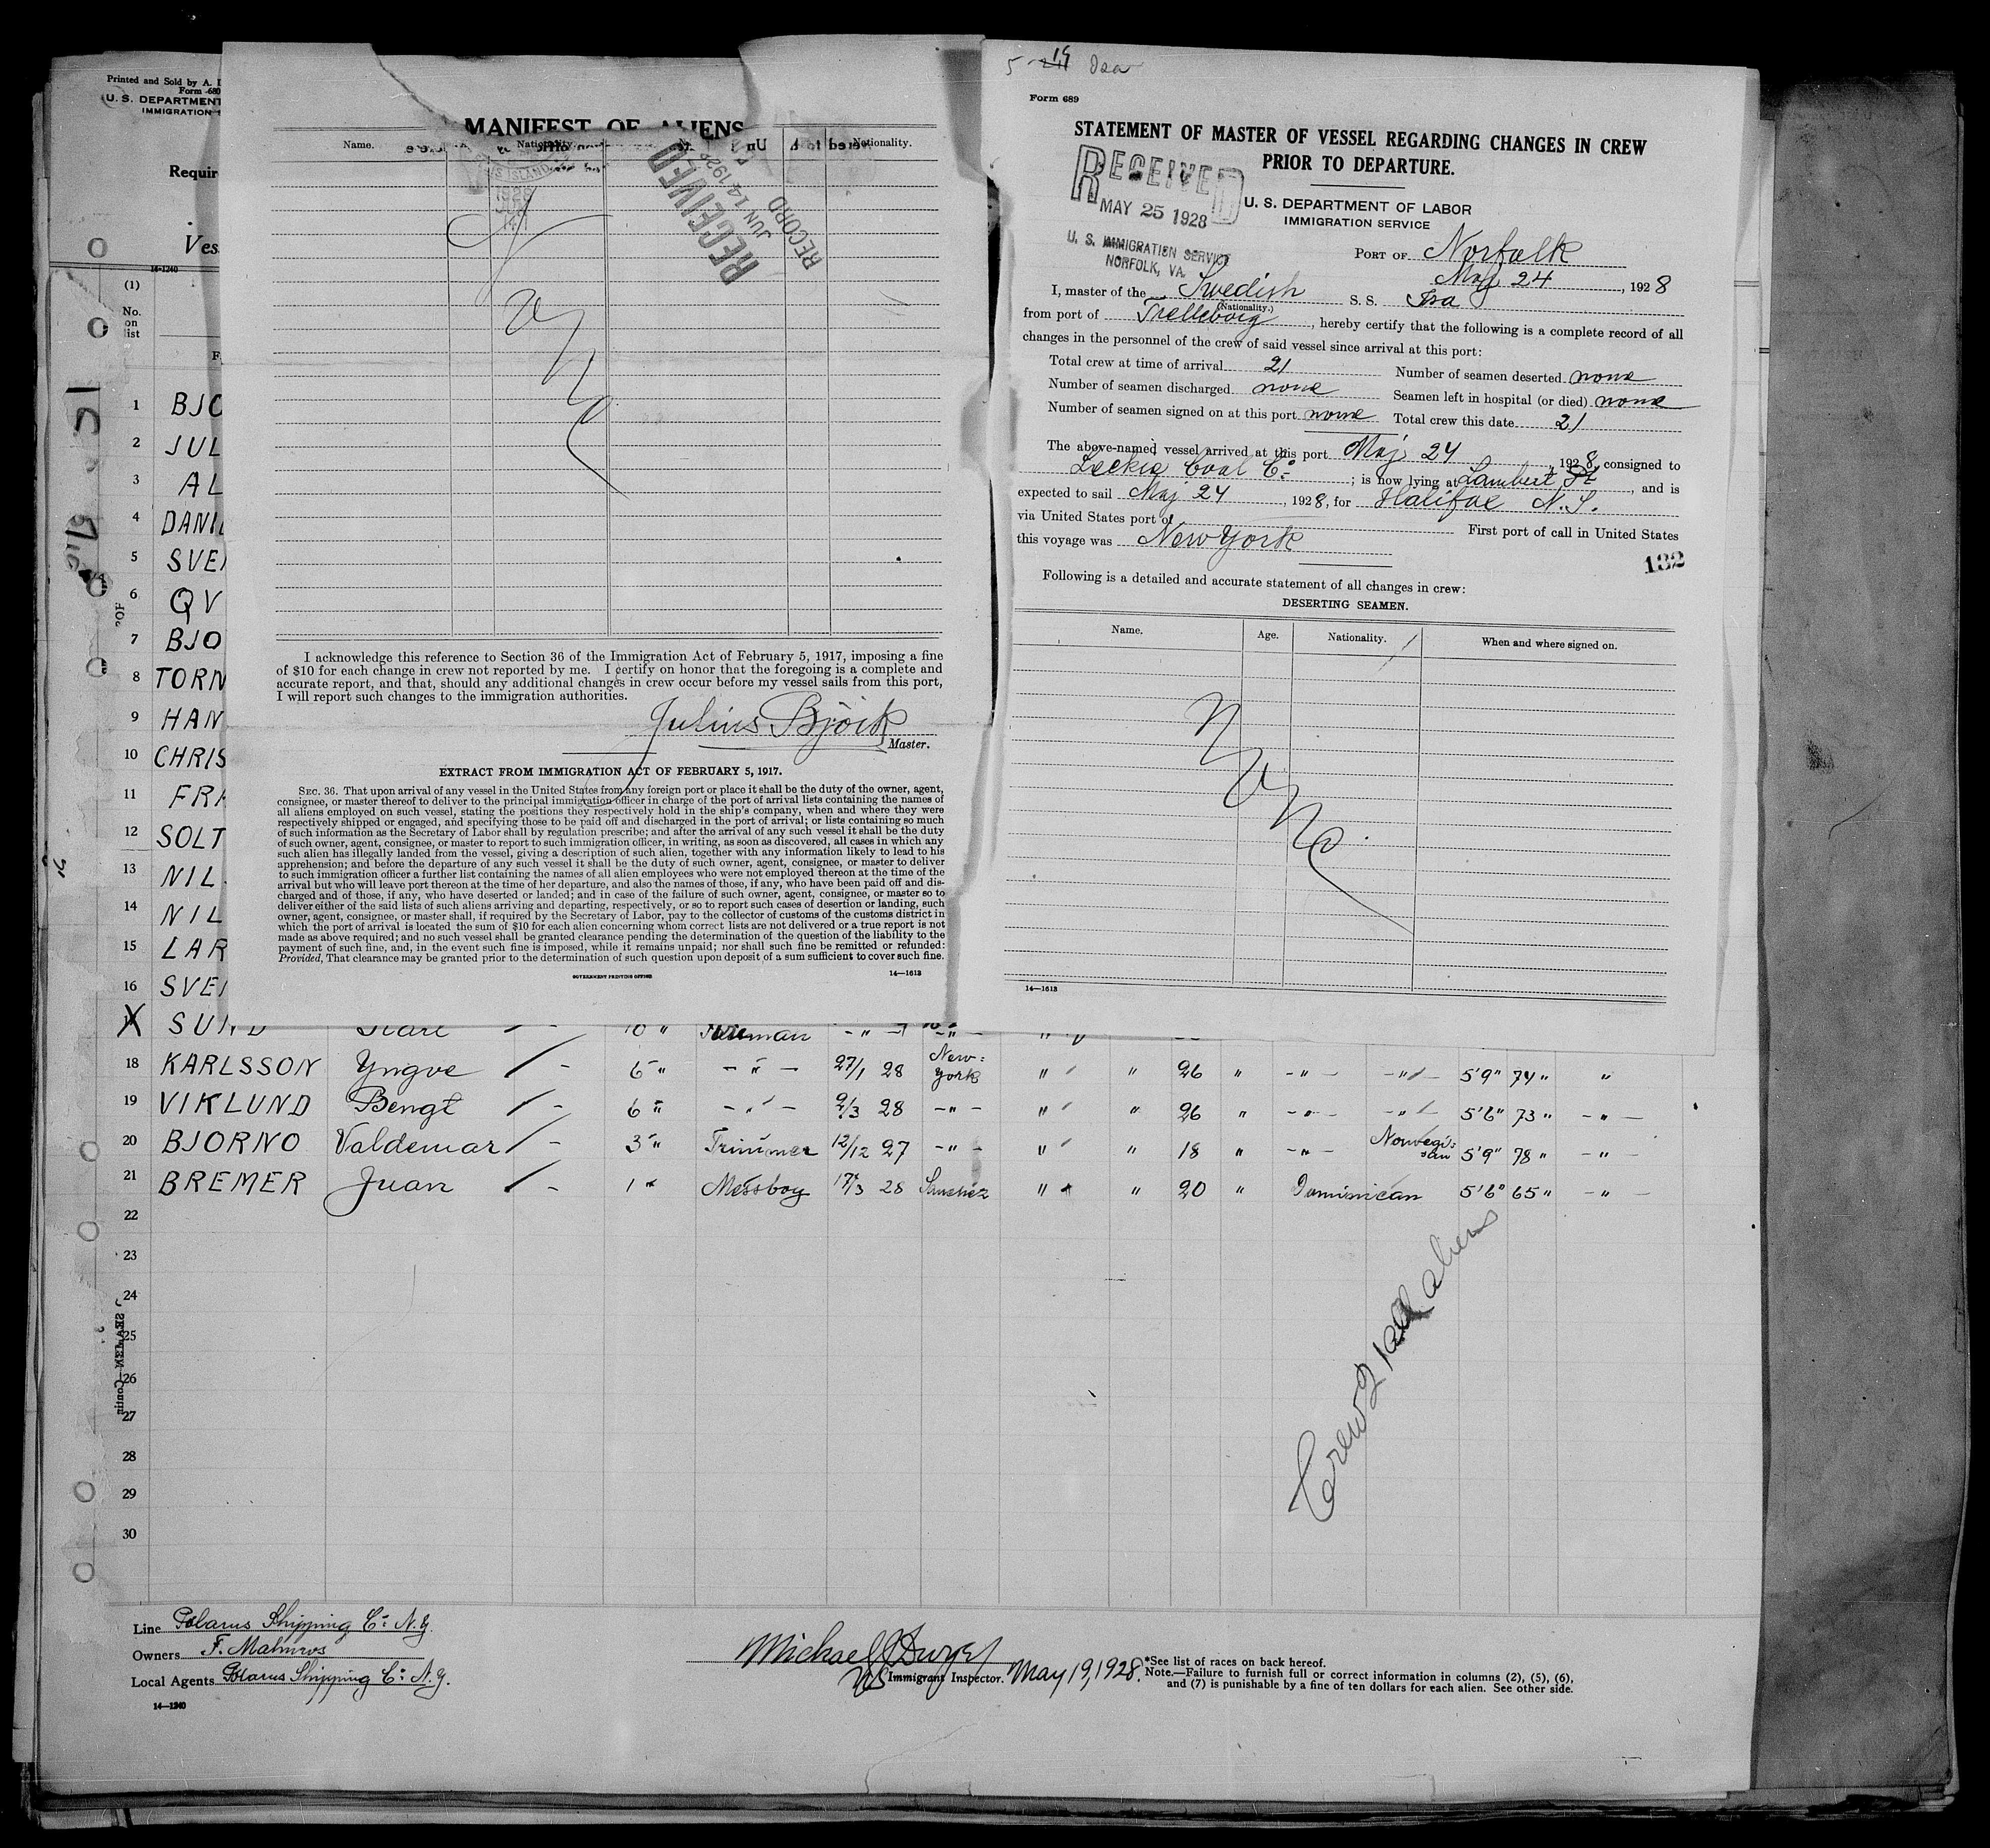 5-19 Isa
Form 689
STATEMENT OF MASTER OF VESSEL REGARDING CHANGES IN CREW
PRIOR TO DEPARTURE.
RECEIVED
MAY 25 1928
U. S. IMMIGRATION SERVICE
NORFOLK, VA.
U. S. DEPARTMENT OF LABOR
IMMIGRATION SERVICE
PORT OF Norfolk
Maj 24, 1928
I, master of the Swedish S. S. Isa
(Nationality.)
from port of Trelleborg, hereby certify that the following is a complete record of all
changes in the personnel of the crew of said vessel since arrival at this port:
Total crew at time of arrival 21 Number of seamen deserted none
Number of seamen discharged none Seamen left in hospital (or died) none
Number of seamen signed on at this port none Total crew this date 21
The above-named vessel arrived at this port Maj 24, 1928, consigned to
Leckie Coal Co; is now lying at Lambert Pt, and is
expected to sail Maj 24, 1928, for Halifax N.S.
via United States port of First port of call in United States
this voyage was New York
132
Following is a detailed and accurate statement of all changes in crew:
DESERTING SEAMEN.
Name. Age. Nationality. When and where signed on.
None
14—1613
MANIFEST OF ALIENS
Name. Nationality. Nationality.
RECEIVED
JUN 14 1928
RECORD
None
I acknowledge this reference to Section 36 of the Immigration Act of February 5, 1917, imposing a fine
of $10 for each change in crew not reported by me. I certify on honor that the foregoing is a complete and
accurate report, and that, should any additional changes in crew occur before my vessel sails from this port,
I will report such changes to the immigration authorities.
Julius Björk
Master.
EXTRACT FROM IMMIGRATION ACT OF FEBRUARY 5, 1917.
SEC. 36. That upon arrival of any vessel in the United States from any foreign port or place it shall be the duty of the owner, agent,
consignee, or master thereof to deliver to the principal immigration officer in charge of the port of arrival lists containing the names of
all aliens employed on such vessel, stating the positions they respectively hold in the ship's company, when and where they were
respectively shipped or engaged, and specifying those to be paid off and discharged in the port of arrival; or lists containing so much
of such information as the Secretary of Labor shall by regulation prescribe; and after the arrival of any such vessel it shall be the duty
of such owner, agent, consignee, or master to report to such immigration officer, in writing, as soon as discovered, all cases in which any
such alien has illegally landed from the vessel, giving a description of such alien, together with any information likely to lead to his
apprehension; and before the departure of any such vessel it shall be the duty of such owner, agent, consignee, or master to deliver
to such immigration officer a further list containing the names of all alien employees who were not employed thereon at the time of the
arrival but who will leave port thereon at the time of her departure, and also the names of those, if any, who have been paid off and dis-
charged and of those, if any, who have deserted or landed; and in case of the failure of such owner, agent, consignee, or master so to
deliver either of the said lists of such aliens arriving and departing, respectively, or so to report such cases of desertion or landing, such
owner, agent, consignee, or master shall, if required by the Secretary of Labor, pay to the collector of customs of the customs district in
which the port of arrival is located the sum of $10 for each alien concerning whom correct lists are not delivered or a true report is not
made as above required; and no such vessel shall be granted clearance pending the determination of the question of the liability to the
payment of such fine, and, in the event such fine is imposed, while it remains unpaid; nor shall such fine be remitted or refunded:
Provided, That clearance may be granted prior to the determination of such question upon deposit of a sum sufficient to cover such fine.
GOVERNMENT PRINTING OFFICE 14—1613
Printed and Sold by A.
Form 680
U. S. DEPARTMENT
IMMIGRATION
Requir
Ves
14-1240
(1)
No.
on
list
1 BJO
2 JUL
3 AL
4 DANI
5 SVE
6 QV
7 BJO
8 TORN
9 HAN
10 CHRIS
11 FRA
12 SOLT
13 NIL
14 NIL
15 LAR
16 SVE
SUND 10 " Fireman
18 KARLSSON Yngve 6 " — " — 27/1 28 New-York " " 26 " — " — — " — 5'9" 74 " "
19 VIKLUND Bengt 6 " — " — 2/3 28 — " — " " 26 " — " — — " — 5'6" 73 " — " —
20 BJORNO Valdemar 3 " Trimmer 12/12 27 — " — " " 18 " — " — Norwegi-an 5'9" 78 " — " —
21 BREMER Juan 1 " Messboy 17/3 28 Sanchez " " 20 " Dominican 5'6" 65 " — " —
22
23
24
25
26
27
28
29
30
Crew 21 all aliens
Line Polarus Shipping Co N.Y.
Owners F. Malmros
Local Agents Polarus Shipping Co N.Y.
14—1240
Michael J Dwyer
US Immigrant Inspector. May 19, 1928.
*See list of races on back hereof.
Note.—Failure to furnish full or correct information in columns (2), (5), (6),
and (7) is punishable by a fine of ten dollars for each alien. See other side.